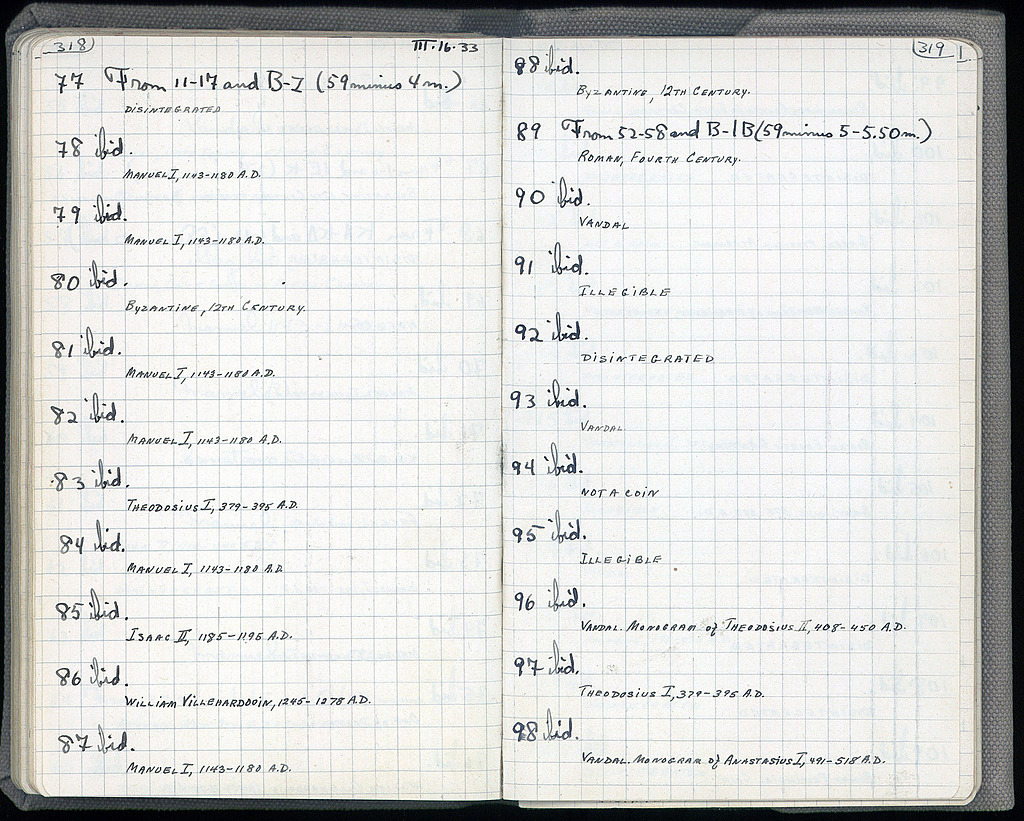 318
III·16·33
77 From 11-17 and B-I (59 minus 4 m.)
DISINTEGRATED
78 ibid.
MANUEL I, 1143-1180 A.D.
79 ibid.
MANUEL I, 1143-1180 A.D.
80 ibid.
BYZANTINE, 12TH CENTURY.
81 ibid.
MANUEL I, 1143-1180 A.D.
82 ibid.
MANUEL I, 1143-1180 A.D.
83 ibid.
THEODOSIUS I, 379-395 A.D.
84 ibid.
MANUEL I, 1143-1180 A.D.
85 ibid.
ISAAC II, 1185-1195 A.D.
86 ibid.
WILLIAM VILLEHARDOUIN, 1245-1278 A.D.
87 ibid.
MANUEL I, 1143-1180 A.D.
319
88 ibid.
BYZANTINE, 12TH CENTURY.
89 From 52-58 and B-IB (59 minus 5-5.50 m.)
ROMAN, FOURTH CENTURY.
90 ibid.
VANDAL
91 ibid.
ILLEGIBLE
92 ibid.
DISINTEGRATED
93 ibid.
VANDAL
94 ibid.
NOT A COIN
95 ibid.
ILLEGIBLE
96 ibid.
VANDAL. MONOGRAM of THEODOSIUS II, 408-450 A.D.
97 ibid.
THEODOSIUS I, 379-395 A.D.
98 ibid.
VANDAL. MONOGRAM of ANASTASIUS I, 491-518 A.D.